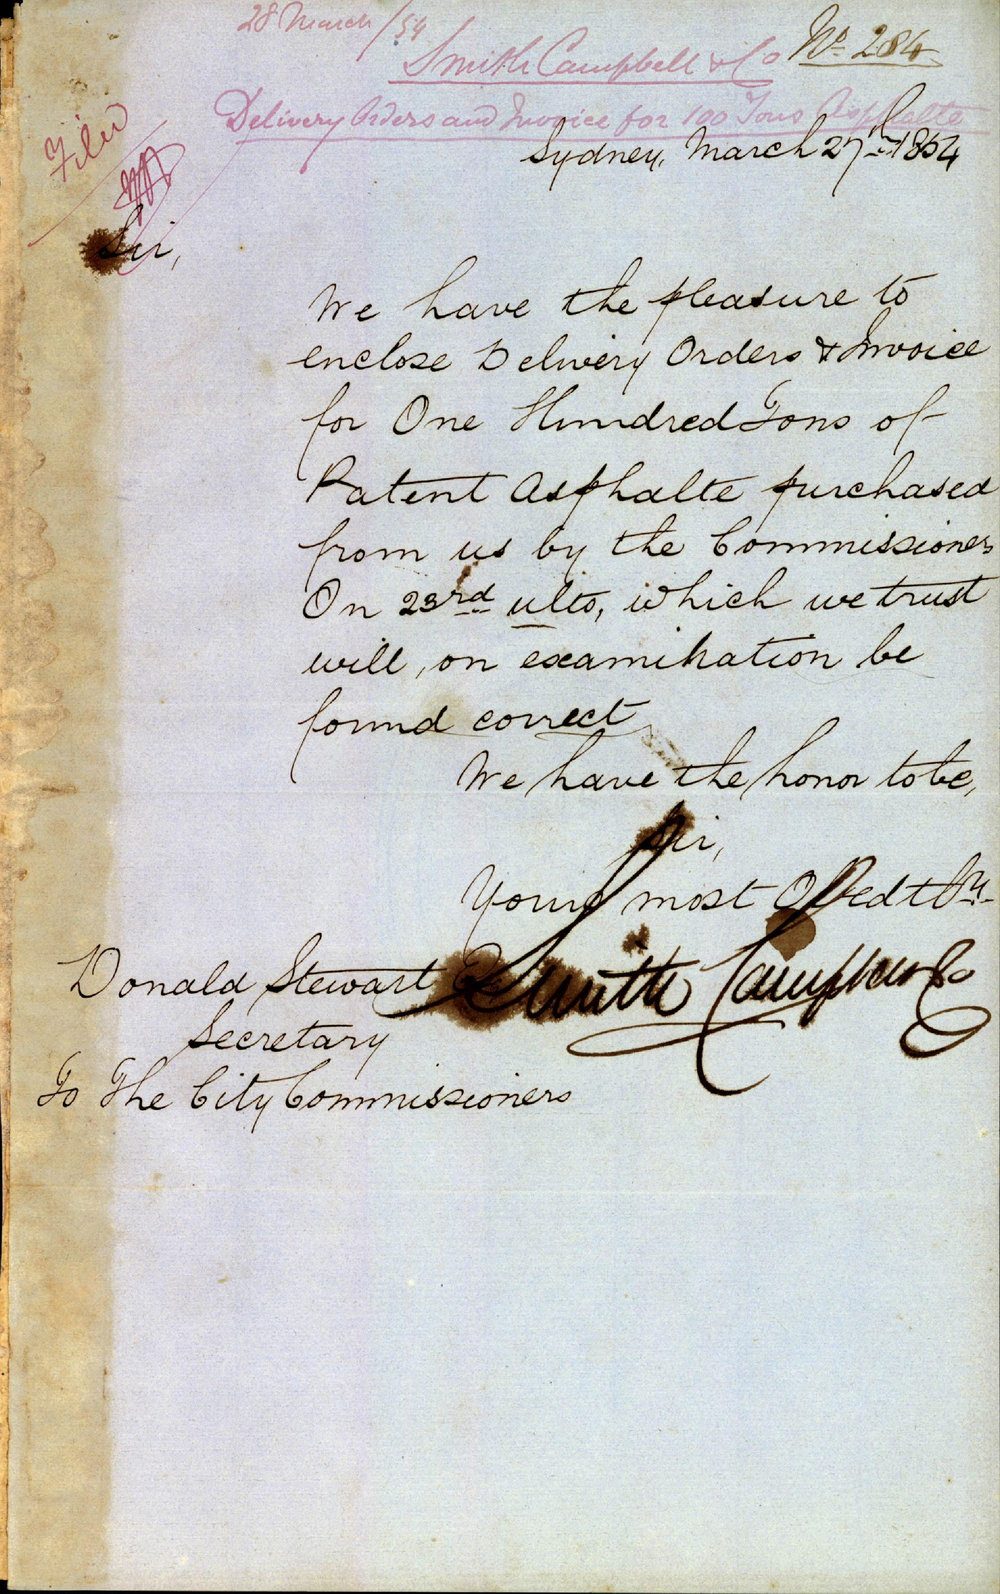 28 March /54
Smith Campbell & Co
No. 284
Delivery Orders and Invoice for 100 Tons Asphalte
Filed
Sydney, March 27th 1854
Sir,
We have the pleasure to
enclose Delivery Orders & Invoice
for One Hundred Tons of
Patent Asphalte purchased
from us by the Commissioners
On 23rd ulto, which we trust
will, on examination be
found correct
We have the honor to be,
Sir,
Your most Obedt
Smith Campbell & Co
Donald Stewart
Secretary
To The City Commissioners